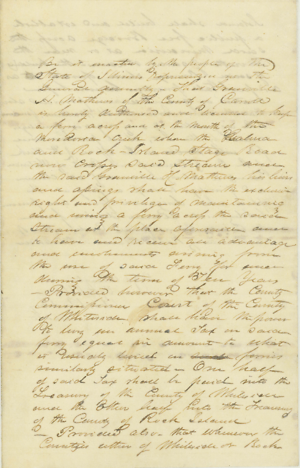 Be it enacted by the people of the
State of Illinois represented in the
General Assembly — That Granville
H. Mathews of the County of Carroll
is hereby authorized and to keep
a ferry across at the mouth of the
where the Galena
and Rock Island Stage Road
now crosses said Stream and
the said Granville H. Mathews his heirs
and assigns shall have the exclusive
right and privilege of maintaining
and using a ferry across the said
Stream at the place aforesaid and
to have and receive all advantage
and emoluments arising from
the use of said ferry for and
during the term of Ten years
— Provided however that the County
Commissioners Court of the County
of Whiteside shall have the power
to levy an annual Tax on said
ferry equal in amount to what
is usually levied on ferries
similarly situated — One half
of said Tax shall be paid into the
Treasury of the County of Whiteside
and the other half into the Treasury
of the County of Rock Island
— Provided also that whenever the
Counties either of Whiteside or Rock